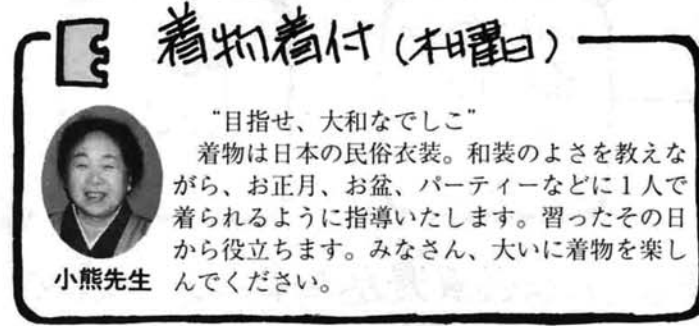 着物着付（木曜日）
“目指せ、大和なでしこ”
着物は日本の民俗衣装。和装のよさを教えな
がら、お正月、お盆、パーティーなどに１人で
着られるように指導いたします。習ったその日
から役立ちます。みなさん、大いに着物を楽し
んでください。
小熊先生